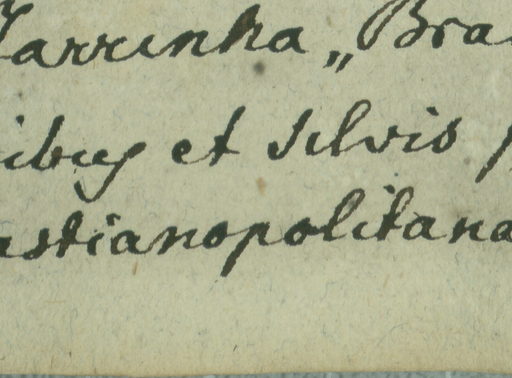 Tarrinha „ Bra
ibus et silvis
astianopolitana